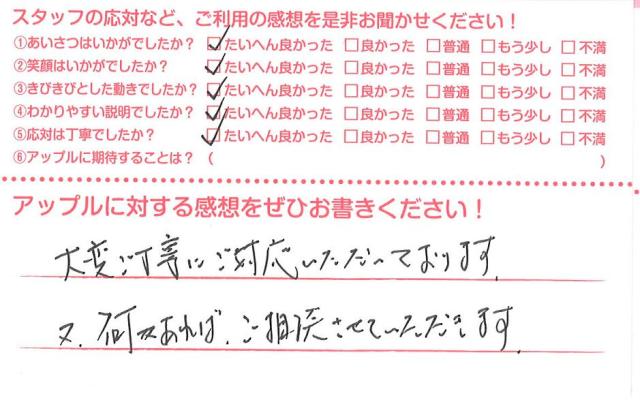 スタッフの応対など、ご利用の感想を是非お聞かせください！
①あいさつはいかがでしたか？ ☑たいへん良かった □良かった □普通 □もう少し □不満
②笑顔はいかがでしたか？ ☑たいへん良かった □良かった □普通 □もう少し □不満
③きびきびとした動きでしたか？ ☑たいへん良かった □良かった □普通 □もう少し □不満
④わかりやすい説明でしたか？ ☑たいへん良かった □良かった □普通 □もう少し □不満
⑤応対は丁寧でしたか？ ☑たいへん良かった □良かった □普通 □もう少し □不満
⑥アップルに期待することは？ （ ）
アップルに対する感想をぜひお書きください！
大変ご丁寧にご対応いただいております。
又、何かあれば、ご相談させていただきます。